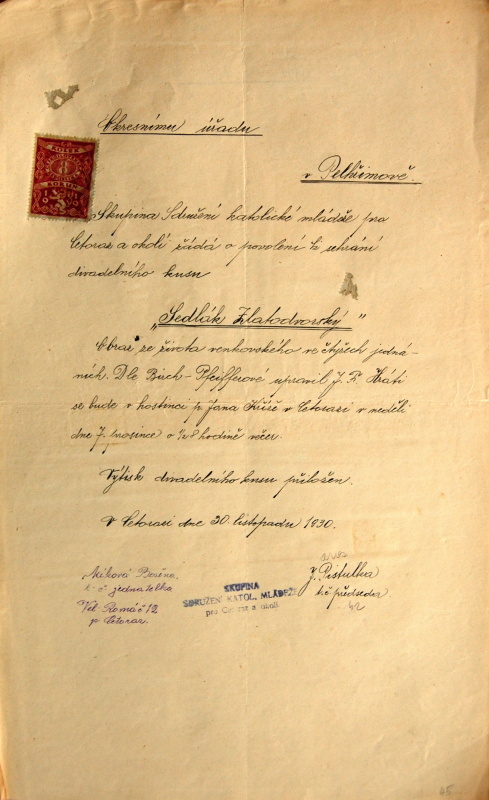 Okresnímu úřadu
v Pelhřimově.
KOLEK
Skupina Sdružení katolické mládeže pro
Cetoraz a okolí žádá o povolení k sehrání
divadelního kusu
„Sedlák Zlatodvorský"
Obraz ze života venkovského ve čtyřech jedná-
ních. Dle Birch-Pfeifferové upravil J. F. Hráti
se bude v hostinci p. Jana Kříže v Cetorazi v neděli
dne 7. prosince o 1/2 8 hodině večer.
Výtisk divadelního kusu přiložen.
V Cetorazi dne 30 listopadu 1930.
Božena
t. č. jednatelka
12
p. Cetoraz.
SKUPINA
SDRUŽENÍ KATOL. MLÁDEŽE
pro Cetoraz a okolí
J. Pistulka
t. č. předseda